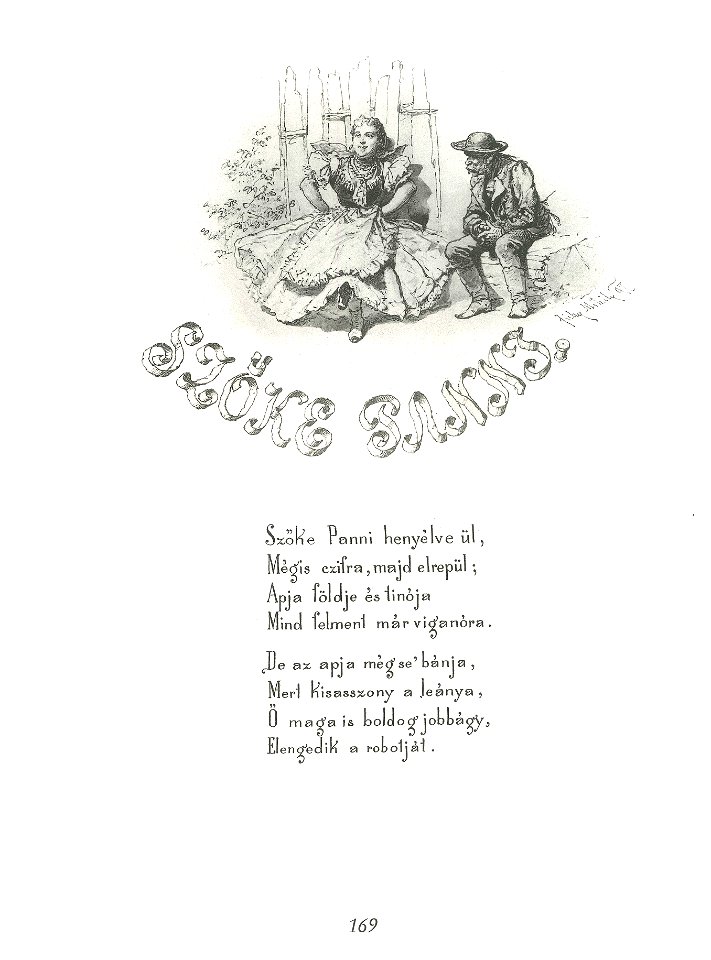 SZŐKE PANNI.
Szőke Panni henyélve ül,
Mégis czifra, majd elrepül;
Apja földje és tinója
Mind felment már viganóra.
De az apja mégse' bánja,
Mert kisasszony a leánya,
Ő maga is boldog jobbágy,
Elengedik a robotját.
169